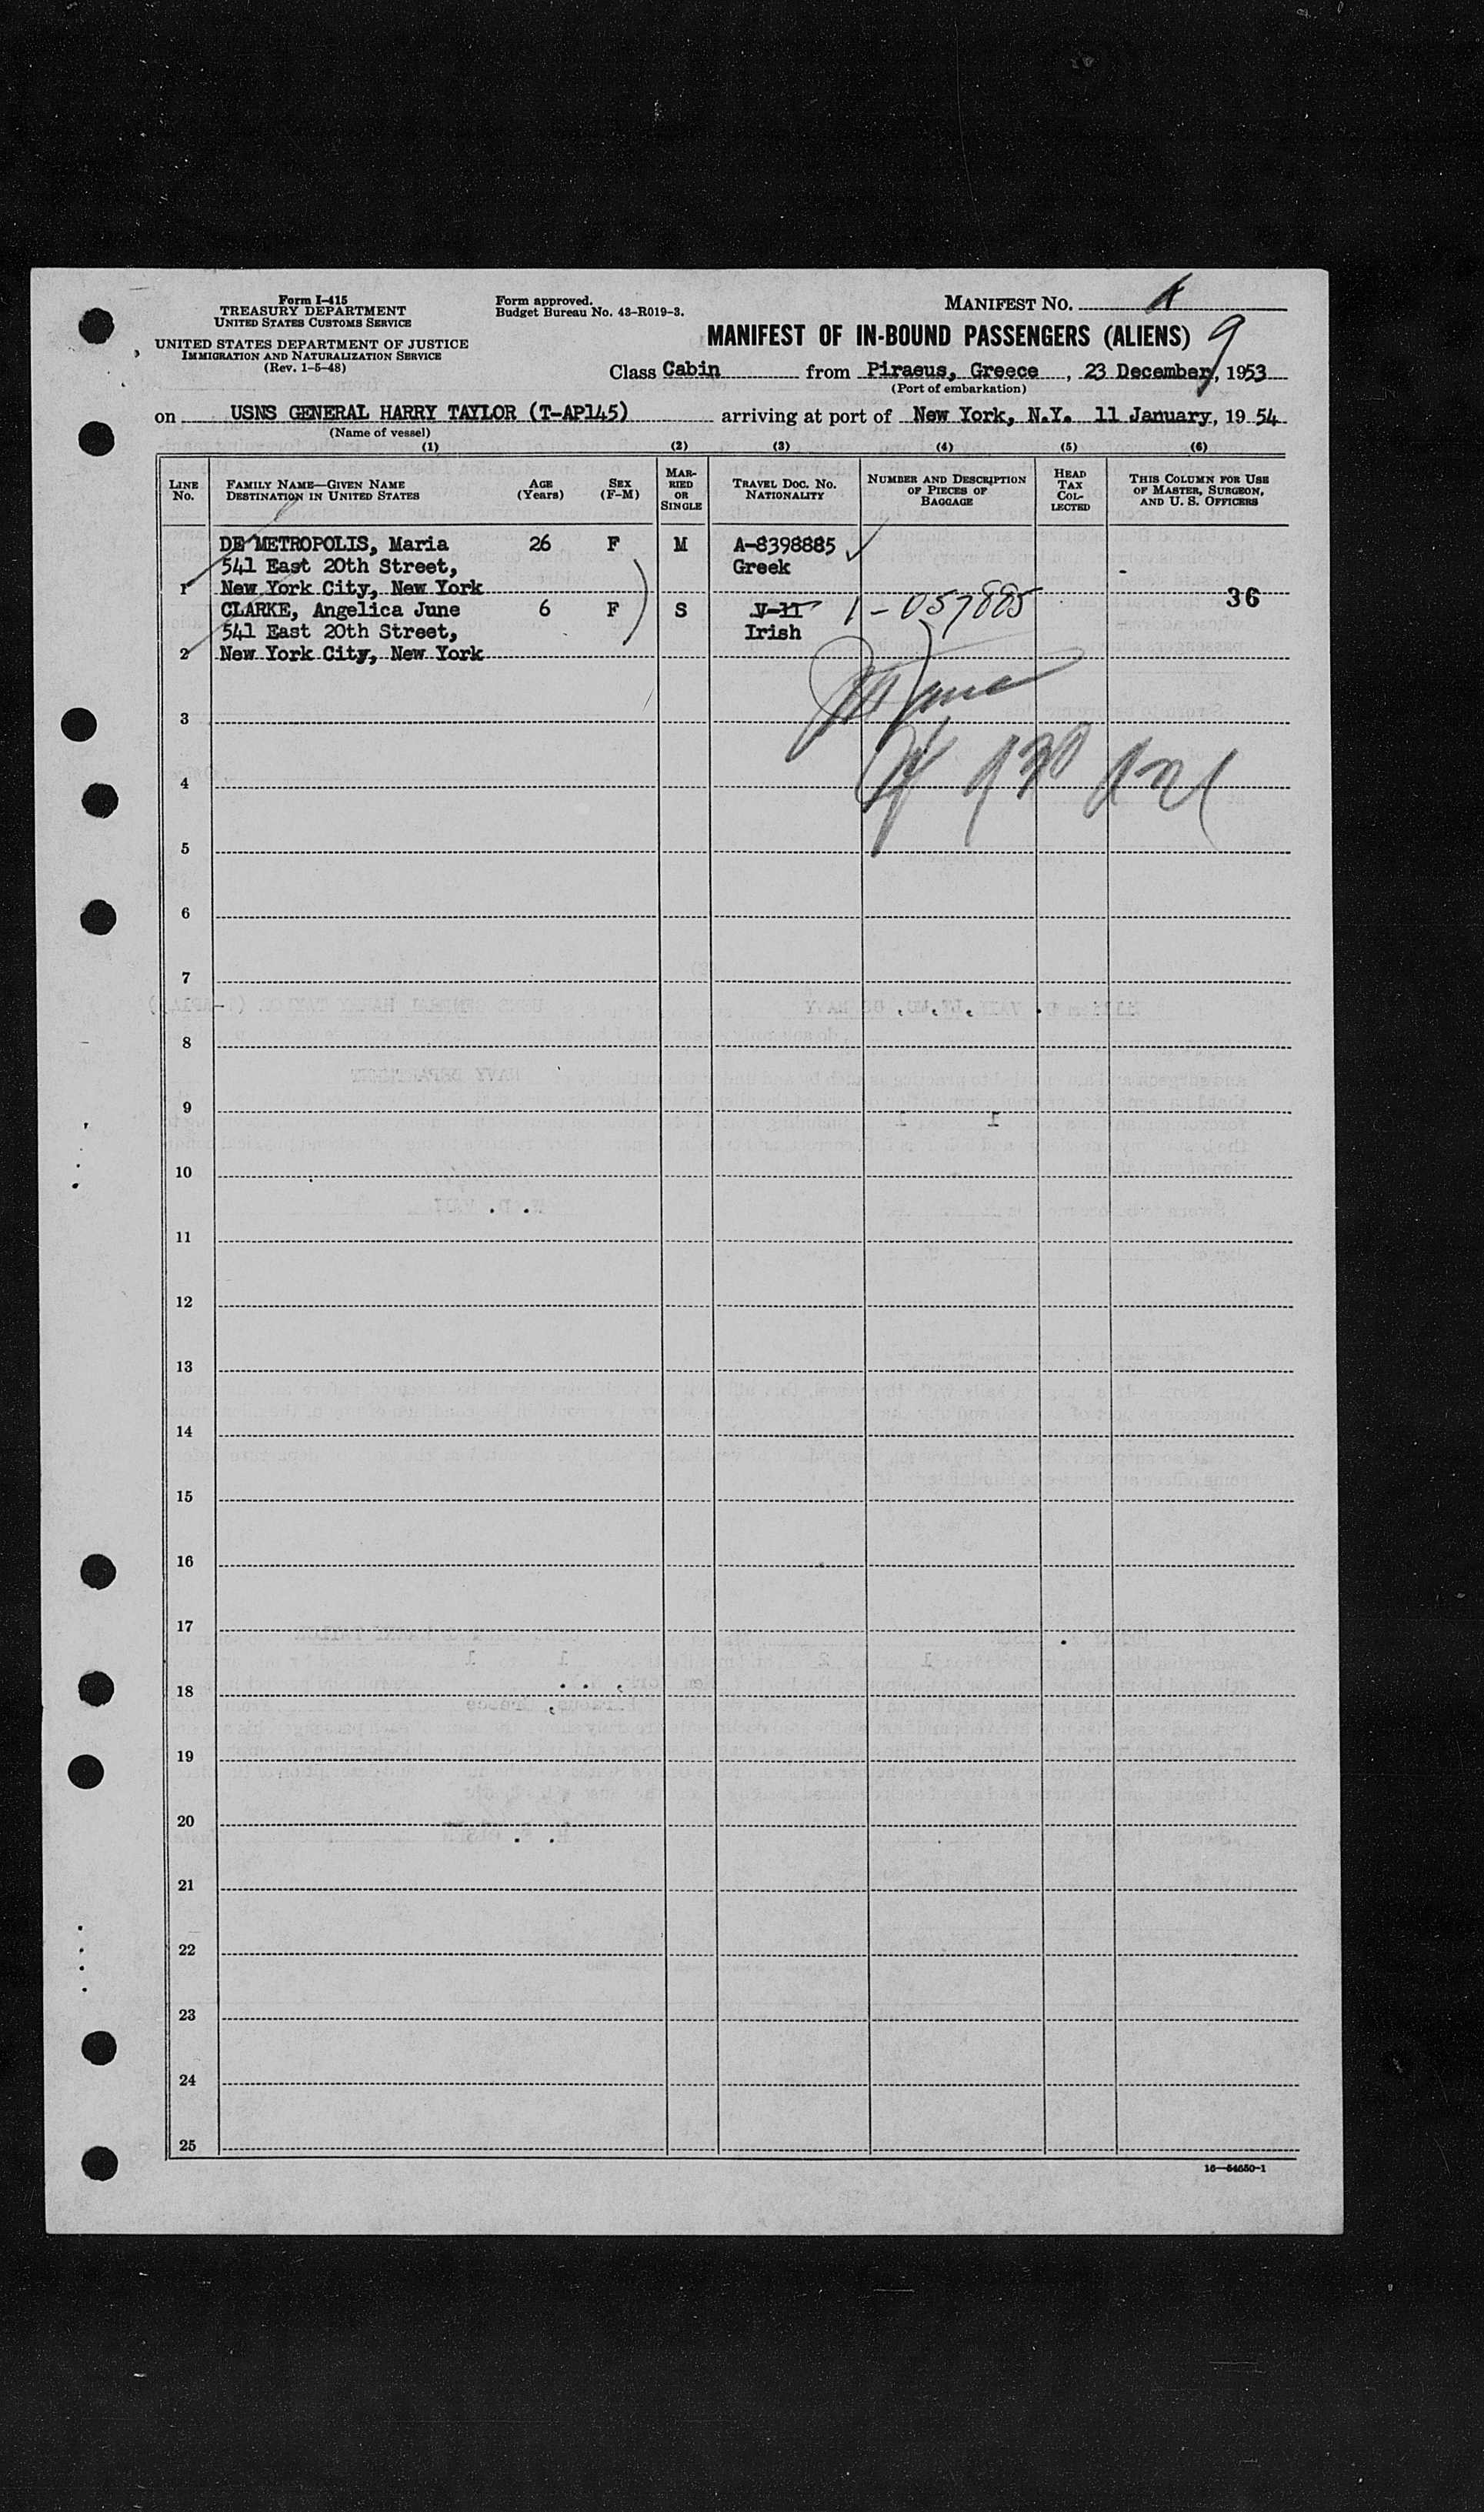 Form I-415
TREASURY DEPARTMENT
UNITED STATES CUSTOMS SERVICE
UNITED STATES DEPARTMENT OF JUSTICE
IMMIGRATION AND NATURALIZATION SERVICE
(Rev. 1-5-48)
Form approved.
Budget Bureau No. 43-R019-3.
MANIFEST NO.
9
MANIFEST OF IN-BOUND PASSENGERS (ALIENS)
Class Cabin from Piraeus, Greece, 23 December, 1953
(Port of embarkation)
on USNS GENERAL HARRY TAYLOR (T-AP145) arriving at port of New York, N.Y. 11 January, 1954
(Name of vessel)
(1) (2) (3) (4) (5) (6)
LINE No.
FAMILY NAME—GIVEN NAME
DESTINATION IN UNITED STATES
AGE (Years)
SEX (F-M)
MARRIED OR SINGLE
TRAVEL DOC. NO. NATIONALITY
NUMBER AND DESCRIPTION OF PIECES OF BAGGAGE
HEAD TAX COLLECTED
THIS COLUMN FOR USE OF MASTER, SURGEON, AND U. S. OFFICERS
DE METROPOLIS, Maria 26 F M A-8398885
541 East 20th Street, Greek
1 New York City, New York
36
CLARKE, Angelica June 6 F S V-11 1-057885
541 East 20th Street, Irish
2 New York City, New York
3
4
5
6
7
8
9
10
11
12
13
14
15
16
17
18
19
20
21
22
23
24
25
16—54650-1